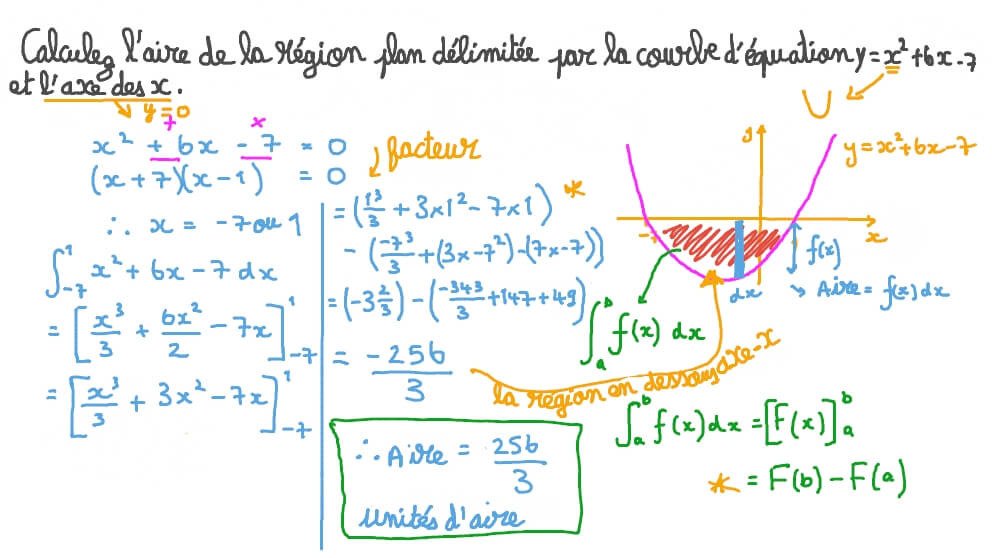 Calculez l'aire de la région plan délimitée par la courbe d'équation y = x² + 6x - 7
et l'axe des x.
y = 0
7 x
x² + 6x - 7 = 0
facteur
(x + 7)(x - 1) = 0
∴ x = -7 ou 1
∫₋₇¹ x² + 6x - 7 dx
= [x³/3 + 6x²/2 - 7x]₋₇¹
= [x³/3 + 3x² - 7x]₋₇¹
= (1³/3 + 3×1² - 7×1) *
- (-7³/3 + (3×-7²) - (7×-7))
= (-3 2/3) - (-343/3 + 147 + 49)
= -256/3
∴ Aire = 256/3
unités d'aire
y
y = x² + 6x - 7
-7
x
f(x)
dx
Aire = f(x) dx
∫ₐᵇ f(x) dx
la région en dessous axe-x
∫ₐᵇ f(x) dx = [F(x)]ₐᵇ
* = F(b) - F(a)